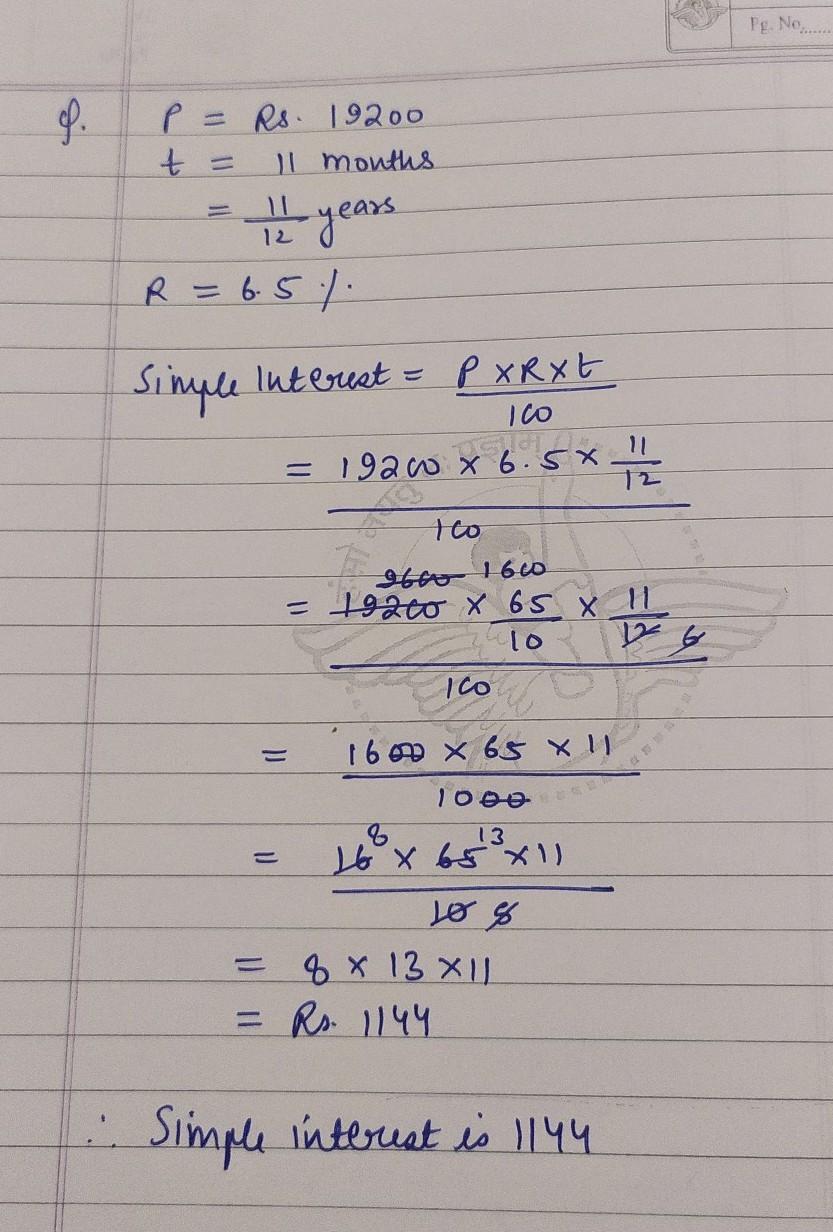 Pg. No.......
Q. P = Rs. 19200
t = 11 months
= 11/12 years
R = 6.5 %
Simple Interest = P × R × t / 100
= 19200 × 6.5 × 11/12 / 100
9600 1600
= 19200 × 65/10 × 11/12 6 / 100
= 1600 × 65 × 11 / 1000
= 16 8 × 65 13 × 11 / 10 5
= 8 × 13 × 11
= Rs. 1144
∴ Simple interest is 1144